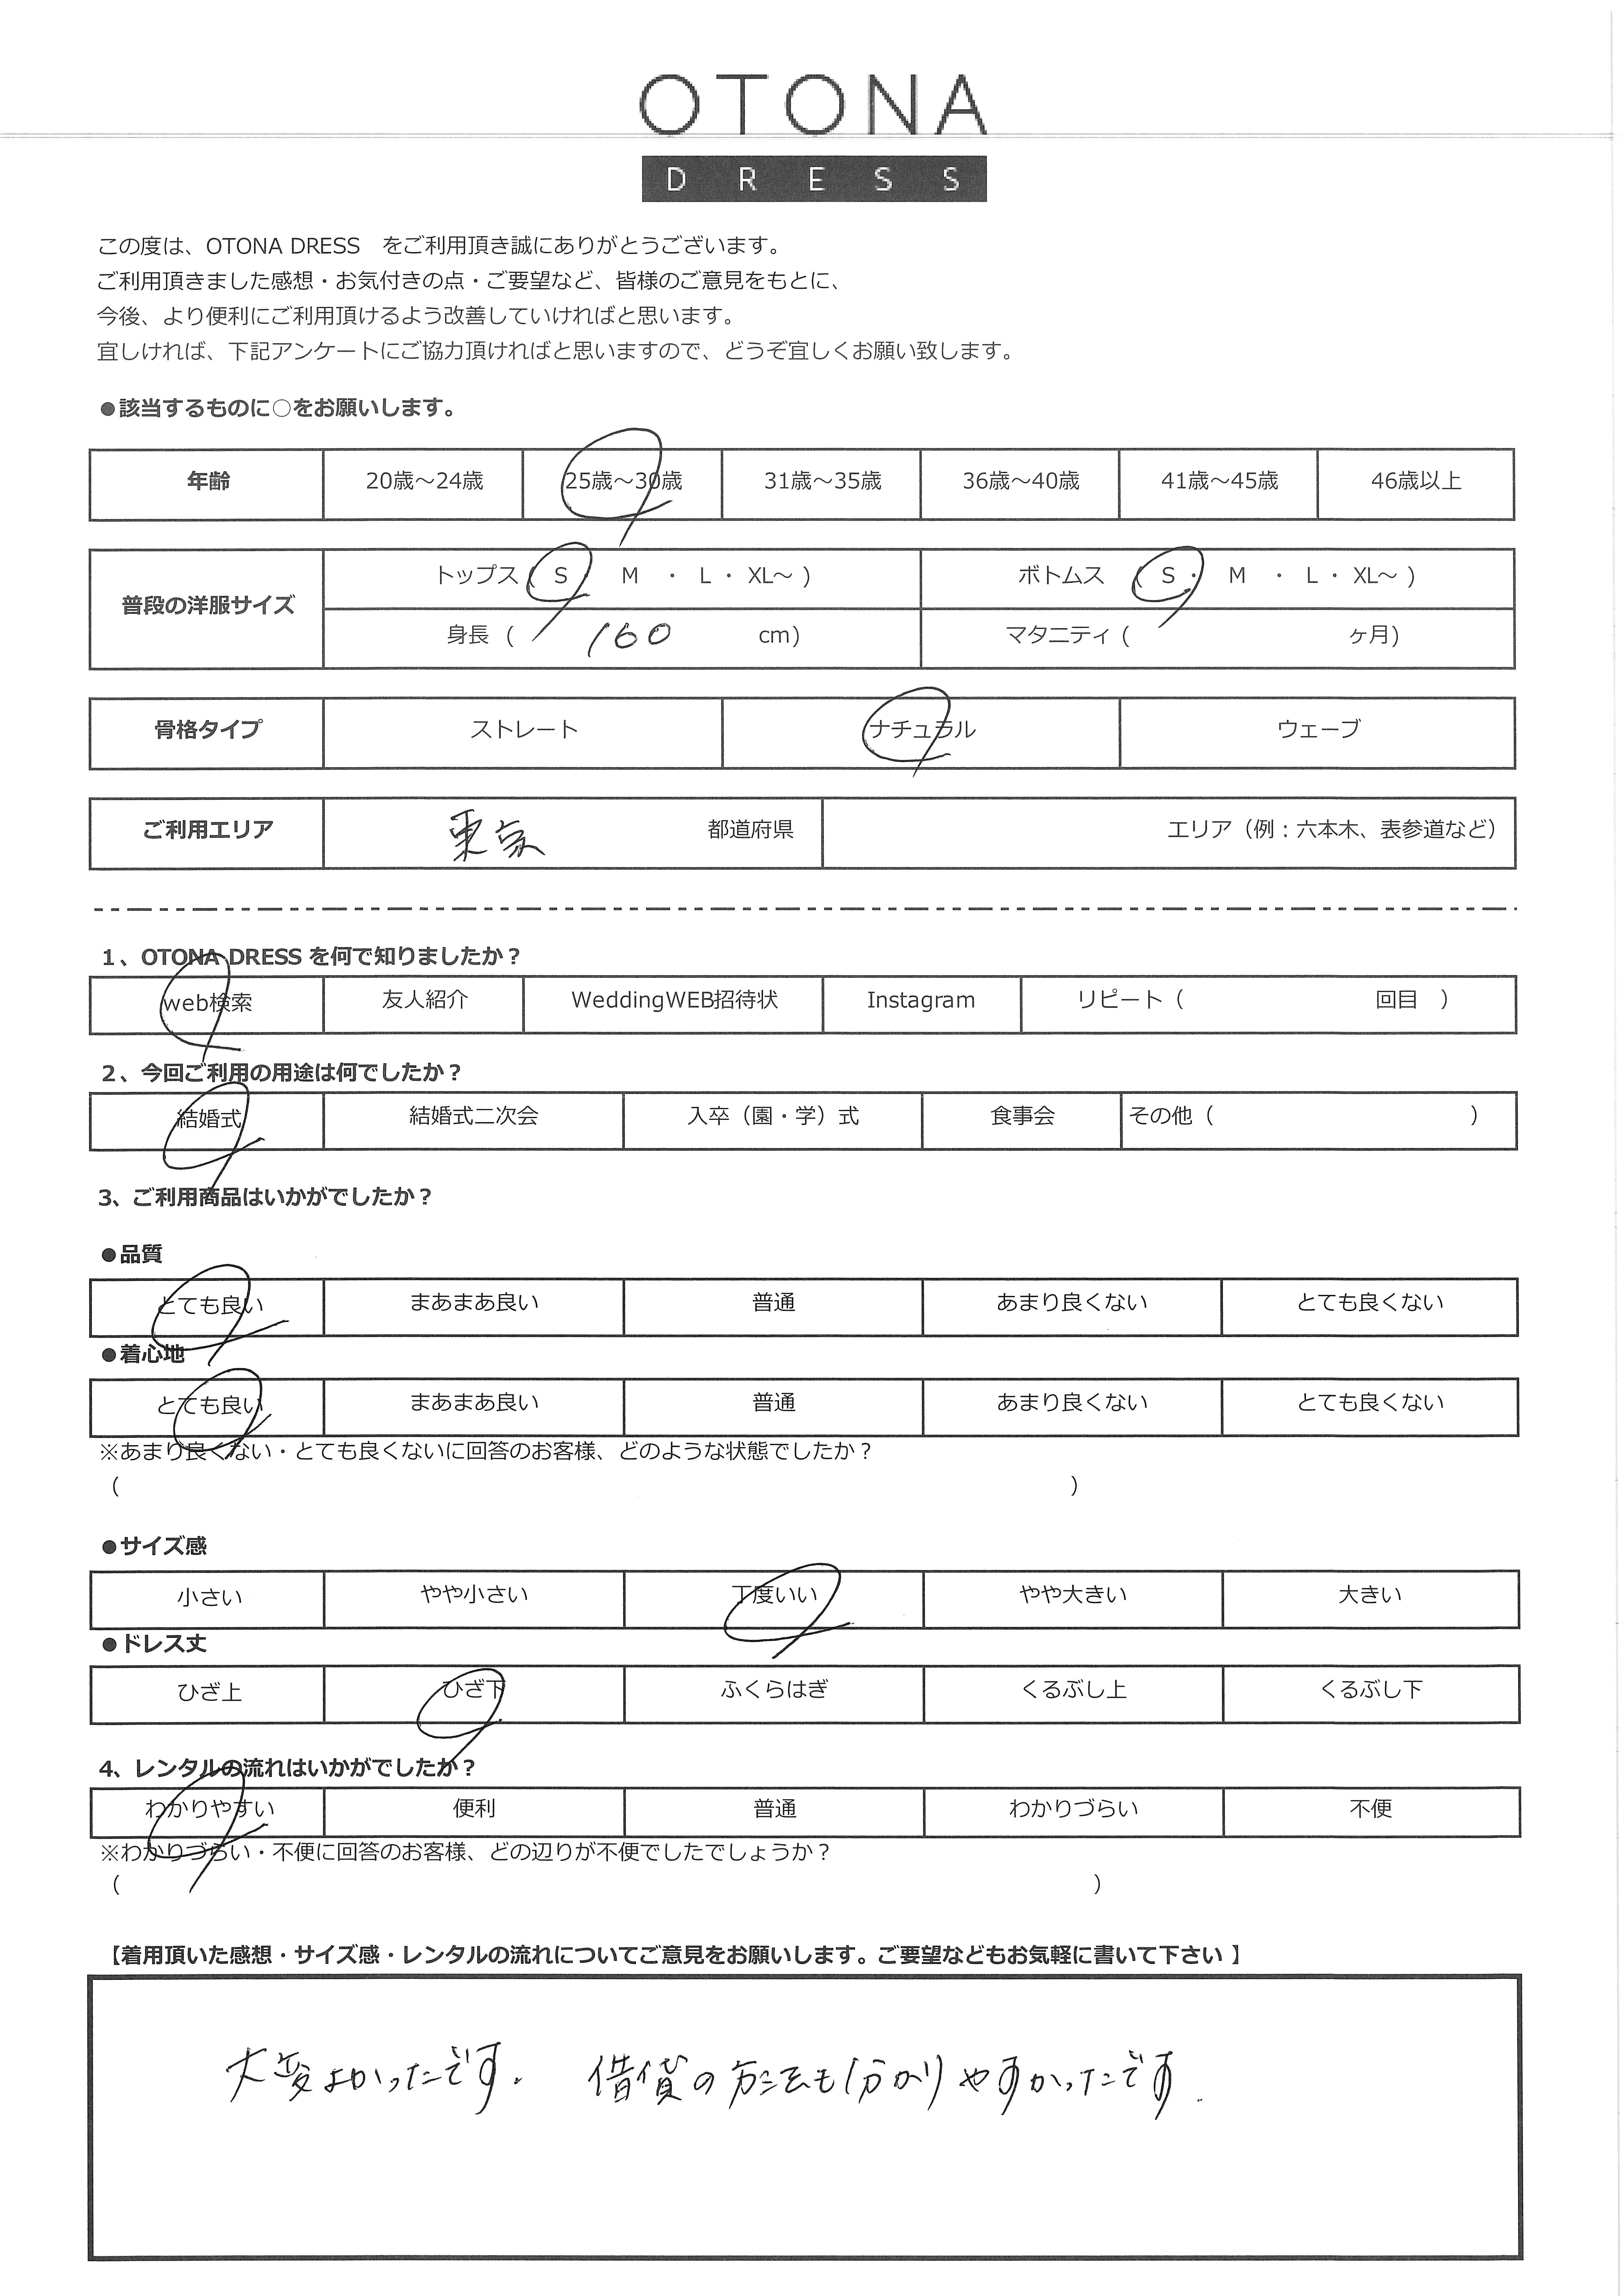 OTONA
DRESS
この度は、OTONA DRESS　をご利用頂き誠にありがとうございます。
ご利用頂きました感想・お気付きの点・ご要望など、皆様のご意見をもとに、
今後、より便利にご利用頂けるよう改善していければと思います。
宜しければ、下記アンケートにご協力頂ければと思いますので、どうぞ宜しくお願い致します。
●該当するものに○をお願いします。
年齢 20歳～24歳 25歳～30歳 31歳～35歳 36歳～40歳 41歳～45歳 46歳以上
普段の洋服サイズ トップス ( S ・ M ・ L ・ XL～ ) ボトムス ( S ・ M ・ L ・ XL～ )
身長 ( 160 cm) マタニティ ( ヶ月)
骨格タイプ ストレート ナチュラル ウェーブ
ご利用エリア 東京 都道府県 エリア（例：六本木、表参道など）
1、OTONA DRESS を何で知りましたか？
web検索 友人紹介 WeddingWEB招待状 Instagram リピート（ 回目 ）
2、今回ご利用の用途は何でしたか？
結婚式 結婚式二次会 入卒（園・学）式 食事会 その他（ ）
3、ご利用商品はいかがでしたか？
●品質
とても良い まあまあ良い 普通 あまり良くない とても良くない
●着心地
とても良い まあまあ良い 普通 あまり良くない とても良くない
※あまり良くない・とても良くないに回答のお客様、どのような状態でしたか？
( )
●サイズ感
小さい やや小さい 丁度いい やや大きい 大きい
●ドレス丈
ひざ上 ひざ下 ふくらはぎ くるぶし上 くるぶし下
4、レンタルの流れはいかがでしたか？
わかりやすい 便利 普通 わかりづらい 不便
※わかりづらい・不便に回答のお客様、どの辺りが不便でしたでしょうか？
( )
【着用頂いた感想・サイズ感・レンタルの流れについてご意見をお願いします。ご要望などもお気軽に書いて下さい 】
大変よかったです. 借貸の方法も分かりやすかったです.